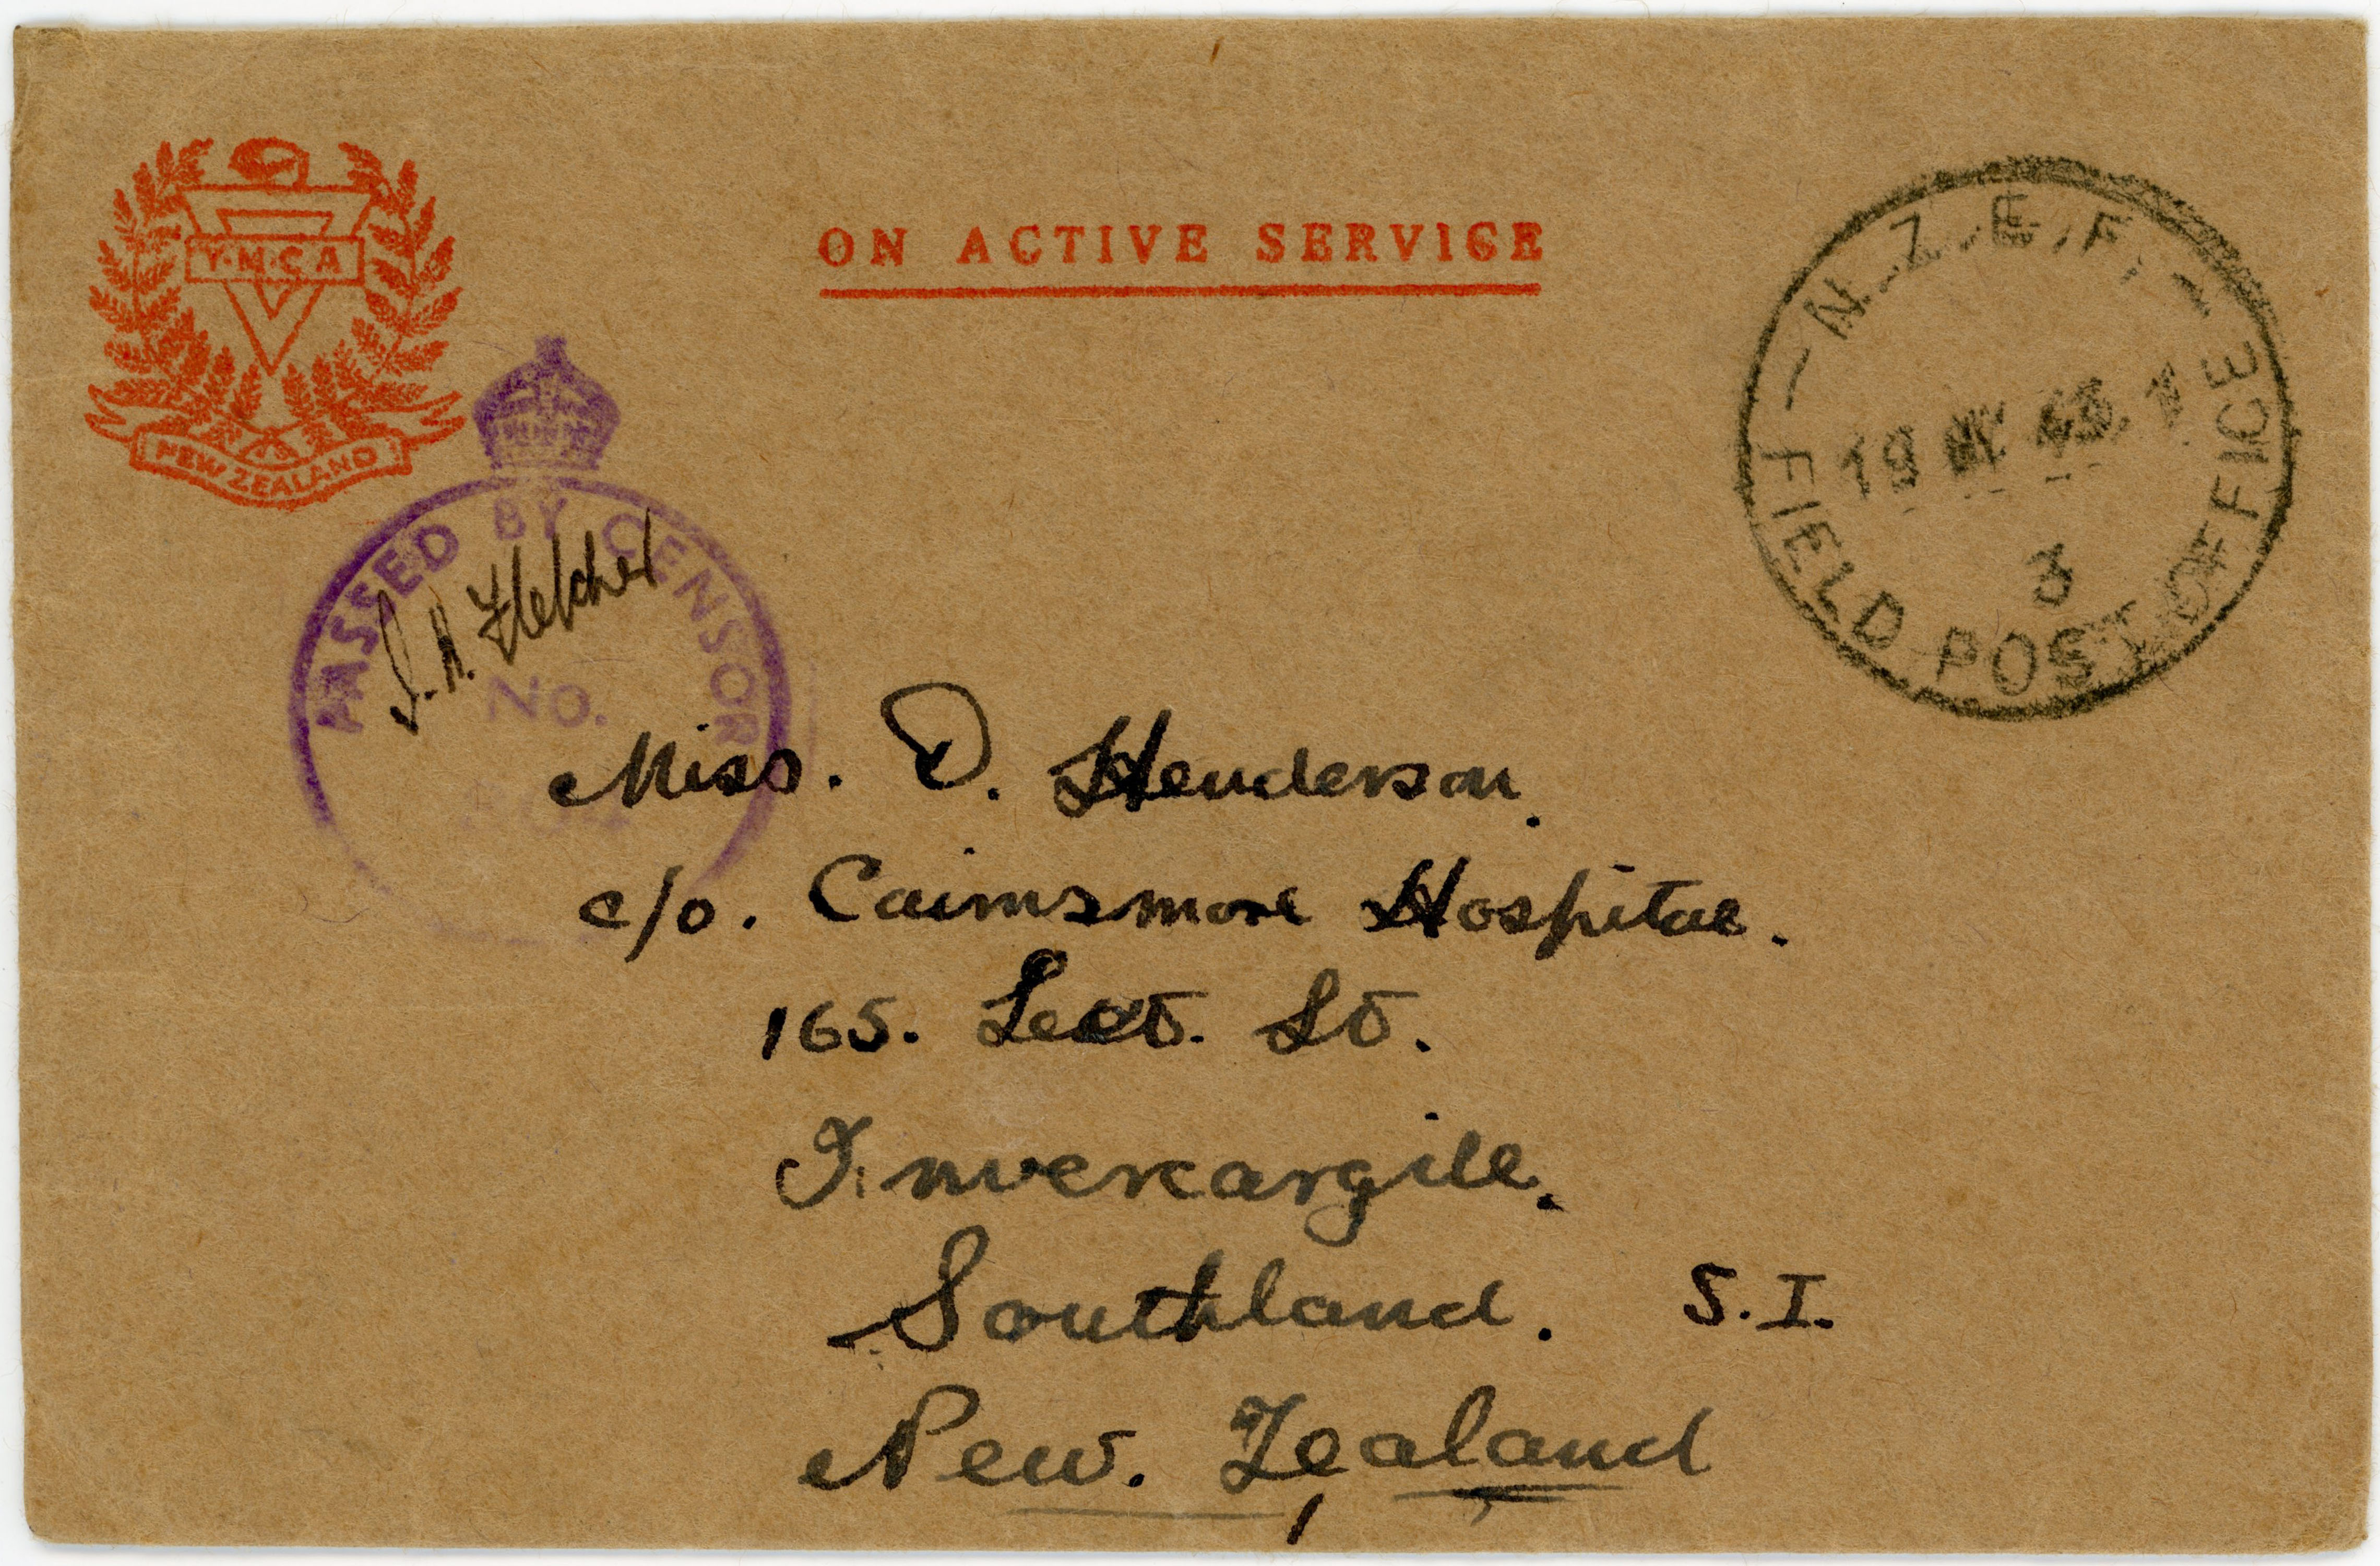 Y·M·C·A
NEW ZEALAND
ON ACTIVE SERVICE
N.Z.E.F.
19
3
FIELD POST OFFICE
PASSED BY CENSOR
No.
Fletcher
Miss. D. Henderson.
c/o. Cairnsmore Hospital.
165. Leet. St.
Invercargill.
Southland. S.I.
New. Zealand